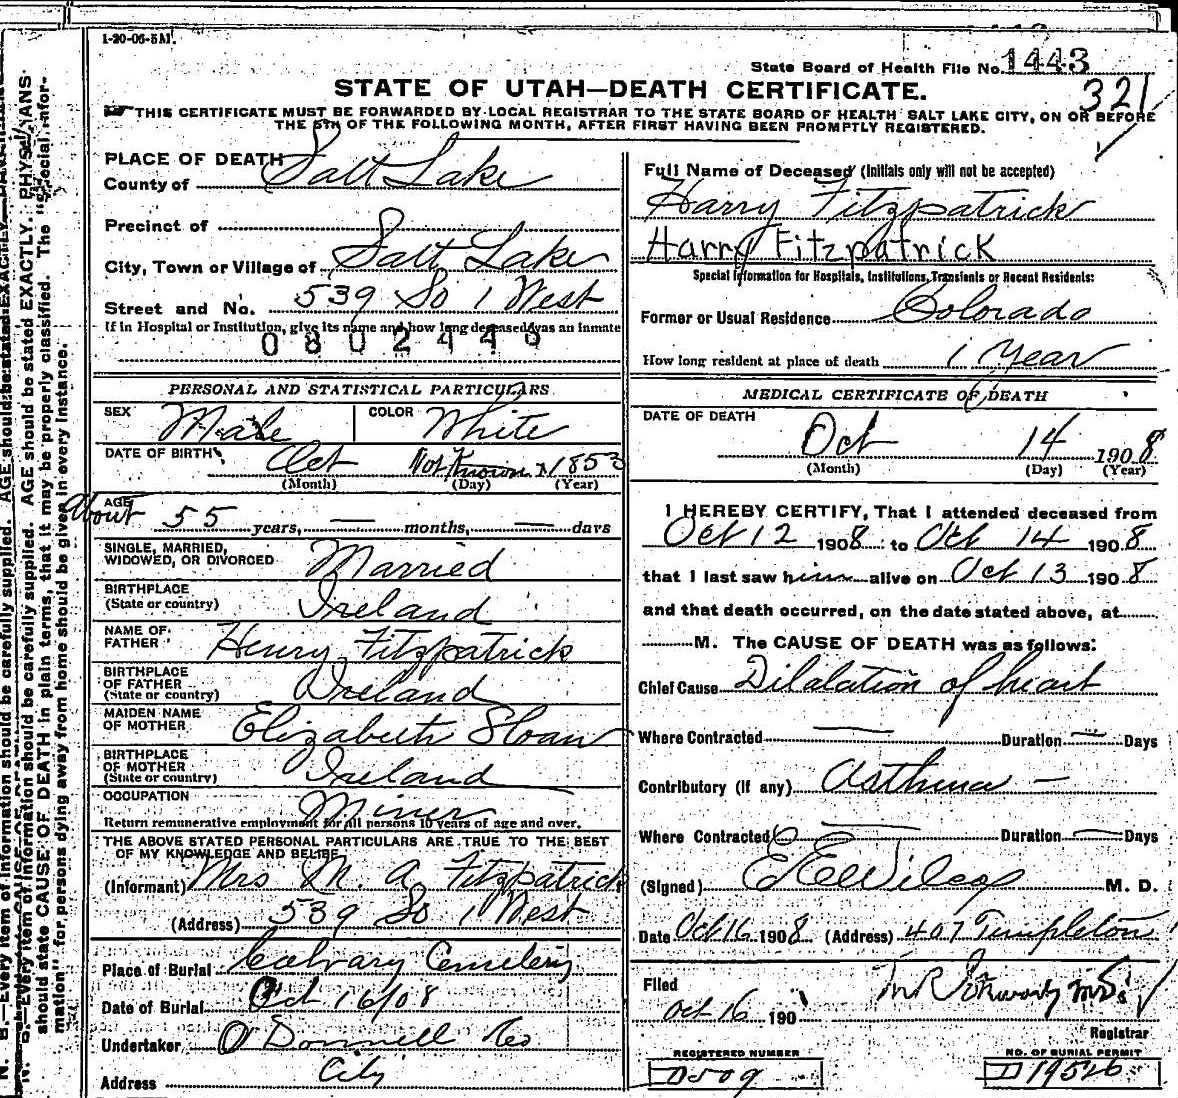 1-20-06-5M.
State Board of Health File No. 1443
321
STATE OF UTAH—DEATH CERTIFICATE.
THIS CERTIFICATE MUST BE FORWARDED BY LOCAL REGISTRAR TO THE STATE BOARD OF HEALTH SALT LAKE CITY, ON OR BEFORE
THE 5TH OF THE FOLLOWING MONTH, AFTER FIRST HAVING BEEN PROMPTLY REGISTERED.
PLACE OF DEATH
County of Salt Lake
Precinct of
City, Town or Village of Salt Lake
Street and No. 539 So 1 West
If in Hospital or Institution, give its name and how long deceased was an inmate
080244
PERSONAL AND STATISTICAL PARTICULARS
SEX Male COLOR White
DATE OF BIRTH Oct Not Known 1853
(Month) (Day) (Year)
AGE
About 55 years, — months, — days
SINGLE, MARRIED,
WIDOWED, OR DIVORCED Married
BIRTHPLACE
(State or country) Ireland
NAME OF
FATHER Henry Fitzpatrick
BIRTHPLACE
OF FATHER
(State or country) Ireland
MAIDEN NAME
OF MOTHER Elizabeth Sloan
BIRTHPLACE
OF MOTHER
(State or country) Ireland
OCCUPATION Miner
Return remunerative employment for all persons 10 years of age and over.
THE ABOVE STATED PERSONAL PARTICULARS ARE TRUE TO THE BEST
OF MY KNOWLEDGE AND BELIEF
(Informant) Mrs M. A. Fitzpatrick
(Address) 539 So 1 West
Place of Burial Calvary Cemetery
Date of Burial Oct 16/08
Undertaker O'Donnell Co
Address City
Full Name of Deceased (Initials only will not be accepted)
Harry Fitzpatrick
Harry Fitzpatrick
Special Information for Hospitals, Institutions, Transients or Recent Residents:
Former or Usual Residence Colorado
How long resident at place of death 1 Year
MEDICAL CERTIFICATE OF DEATH
DATE OF DEATH
Oct 14 1908
(Month) (Day) (Year)
I HEREBY CERTIFY, That I attended deceased from
Oct 12 1908 to Oct 14 1908
that I last saw him alive on Oct 13 1908
and that death occurred, on the date stated above, at
M. The CAUSE OF DEATH was as follows:
Chief Cause Dilalation of heart
Where Contracted — Duration — Days
Contributory (if any) Asthma —
Where Contracted — Duration — Days
(Signed) E E Wilcox M. D.
Date Oct 16 1908 (Address) 407 Templeton
Filed
Oct 16 190
Registrar
REGISTERED NUMBER
D509
NO. OF BURIAL PERMIT
D 19526
N. B.—Every item of information should be carefully supplied. AGE should be stated EXACTLY. PHYSICIANS
should state CAUSE OF DEATH in plain terms, that it may be properly classified. The "Special Infor-
mation" for persons dying away from home should be given in every instance.